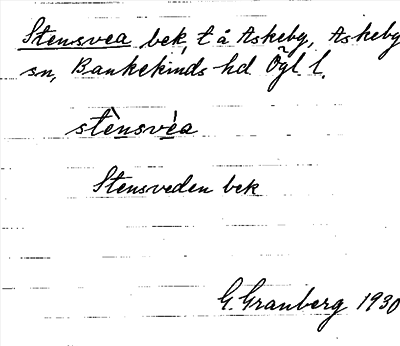 Stensvea bek, t å Askeby, Askeby
sn, Bankekinds hd Ögl l.
stènsvèa
Stensveden bek
G. Granberg 1930